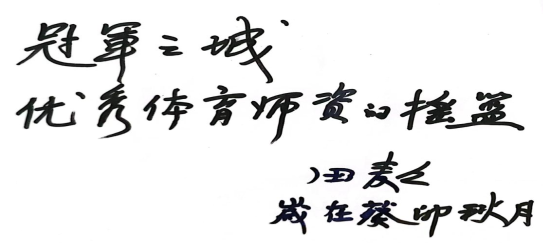 冠軍之城
优秀体育师资的摇篮
田麦久
岁在葵卯秋月